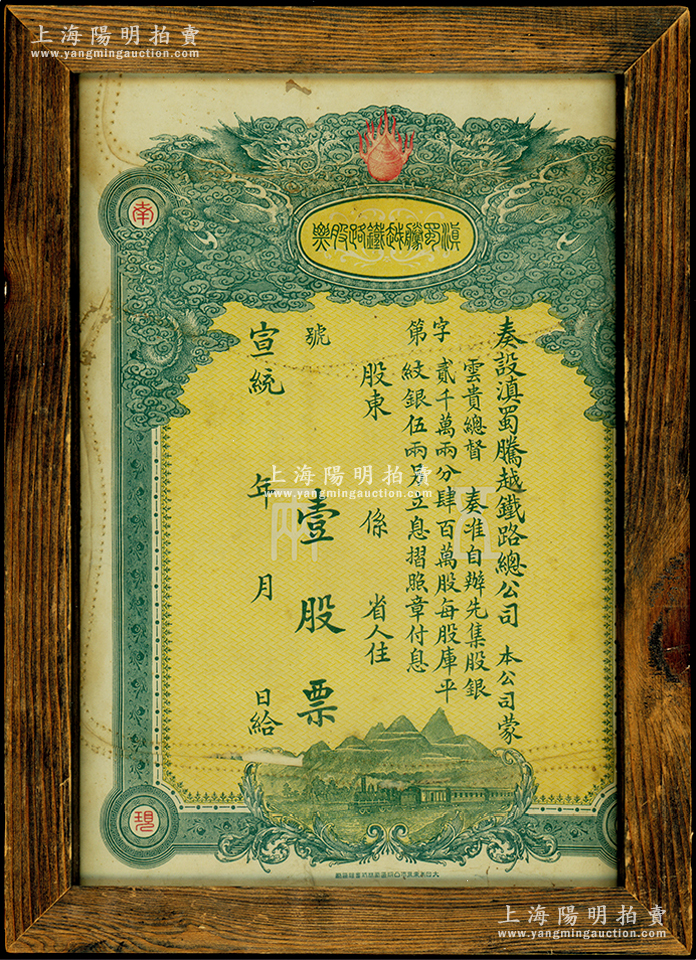 上海陽明拍賣
www.yangmingauction.com
上海陽明拍賣
www.yangmingauction.com
滇蜀騰越鐵路股票
南
現
奏設滇蜀騰越鐵路總公司 本公司蒙
雲貴總督 奏准自辦先集股銀
貳千萬兩分肆百萬股每股庫平
紋銀伍兩另立息摺照章付息
字第 號
股東 係 省人住
壹股票
宣統 年 月 日給
上海陽明拍賣
www.yangmingauction.com
伍
兩
上海陽明拍賣
www.yangmingauction.com